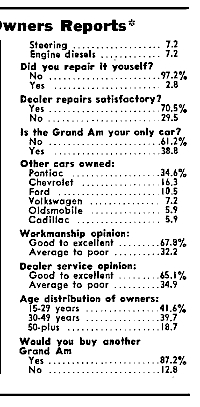 Owners Reports*
Steering ................. 7.2
Engine diesels ........... 7.2
Did you repair it youself?
No ..................... 97.2%
Yes .................... 2.8
Dealer repairs satisfactory?
Yes .................... 70.5%
No ..................... 29.5
Is the Grand Am your only car?
No ..................... 61.2%
Yes .................... 38.8
Other cars owned:
Pontiac ................ 34.6%
Chevrolet .............. 16.3
Ford ................... 10.5
Volkswagen ............. 7.2
Oldsmobile ............. 5.9
Cadillac ............... 5.9
Workmanship opinion:
Good to excellent ...... 67.8%
Average to poor ........ 32.2
Dealer service opinion:
Good to excellent ...... 65.1%
Average to poor ........ 34.9
Age distribution of owners:
15-29 years ............ 41.6%
30-49 years ............ 39.7
50-plus ................ 18.7
Would you buy another
Grand Am
Yes .................... 87.2%
No ..................... 12.8